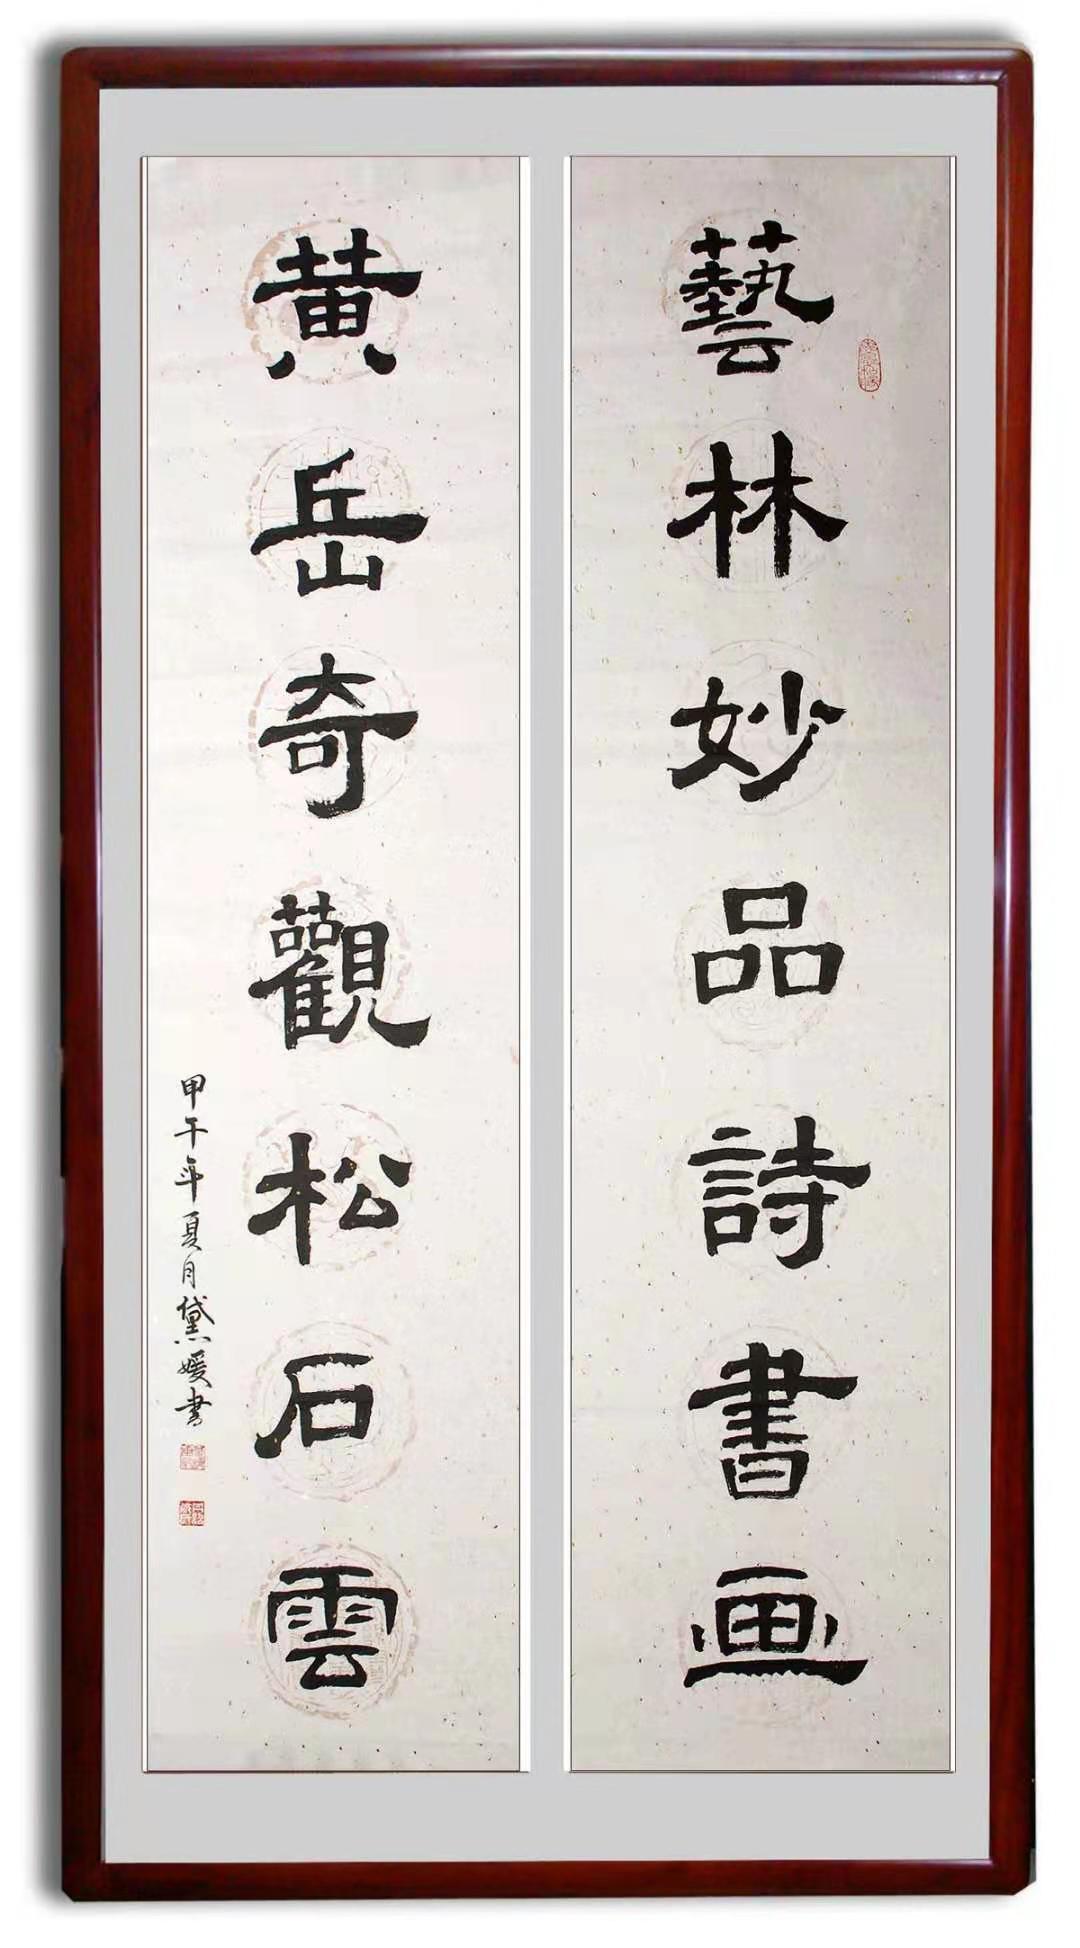 藝林妙品詩書画
黄岳奇觀松石雲
甲午年夏月黛媛书